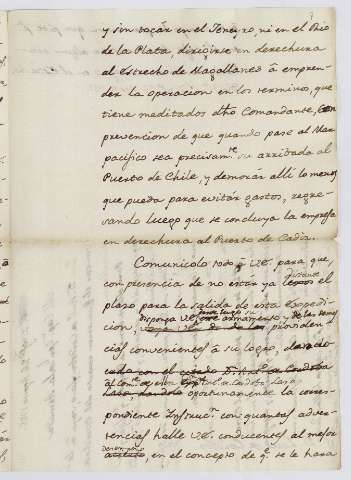 y sin tocar en el Jeneyro, ni en el Rio
de la Plata, dirigirse en derechura
al Estrecho de Magallanes â empren-
der la operacion en los terminos, que
tiene meditados dho Comandante, con
prevencion de que quando pase al Mar
pacifico sea precisam.te su arribada al
Puerto de Chile, y demorar alli lo menos
que pueda para evitar gastos, regre-
sando luego que se concluya la empresa
en derechura al Puerto de Cadiz.
Comunicolo todo â V.E. para que,
con presencia de no estar ya lexos el
distante
plazo para la salida de esta Expedi-
disponga V.E. desde luego su
cion, armamento y de las demas
providen-
cias convenientes â su logro,
oportunamente la corres-
pondiente Instruc.n con quantas adver-
tencias halle V.E. conducentes al mejor
desempeño
acierto, en el concepto de q.e se le hara